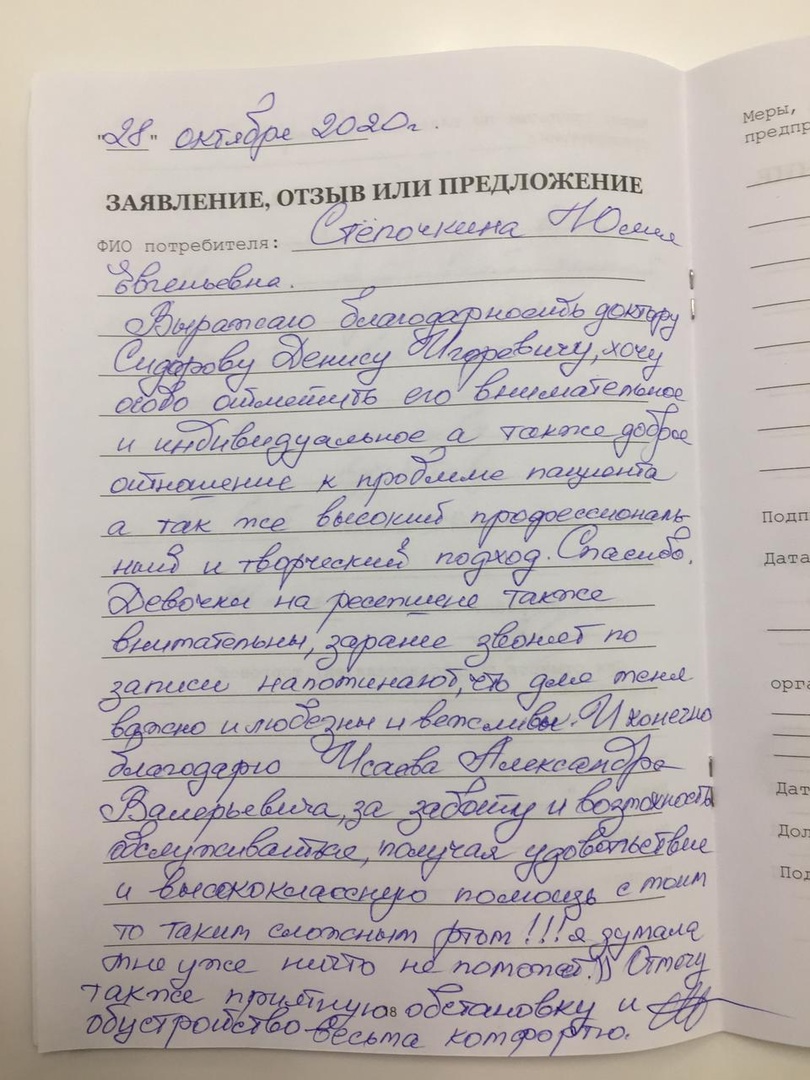 "28" октября 2020г.
ЗАЯВЛЕНИЕ, ОТЗЫВ ИЛИ ПРЕДЛОЖЕНИЕ
ФИО потребителя: Стёпочкина Юлия
Евгеньевна.
Выражаю благодарность доктору
Сидорову Денису Игоревичу, хочу
особо отметить его внимательное
и индивидуальное а также доброе
отношение к проблеме пациента
а так же высокий профессиональ-
ный и творческий подход. Спасибо.
Девочки на ресепшене также
внимательны, заранее звонят по
записи напоминают, что для меня
важно и любезны и вежливы. И конечно
благодарю Исаева Александра
Валерьевича, за заботу и возможность
обслуживаться, получая удовольствие
и высококлассную помощь с моим
то таким сложным ртом!!! я думала
мне уже ничто не поможет!)) Отмечу
также приятную обстановку и
18
обустройство весьма комфортно.
Меры,
предпр
Подп
Дата
орга
Дат
Дол
Под